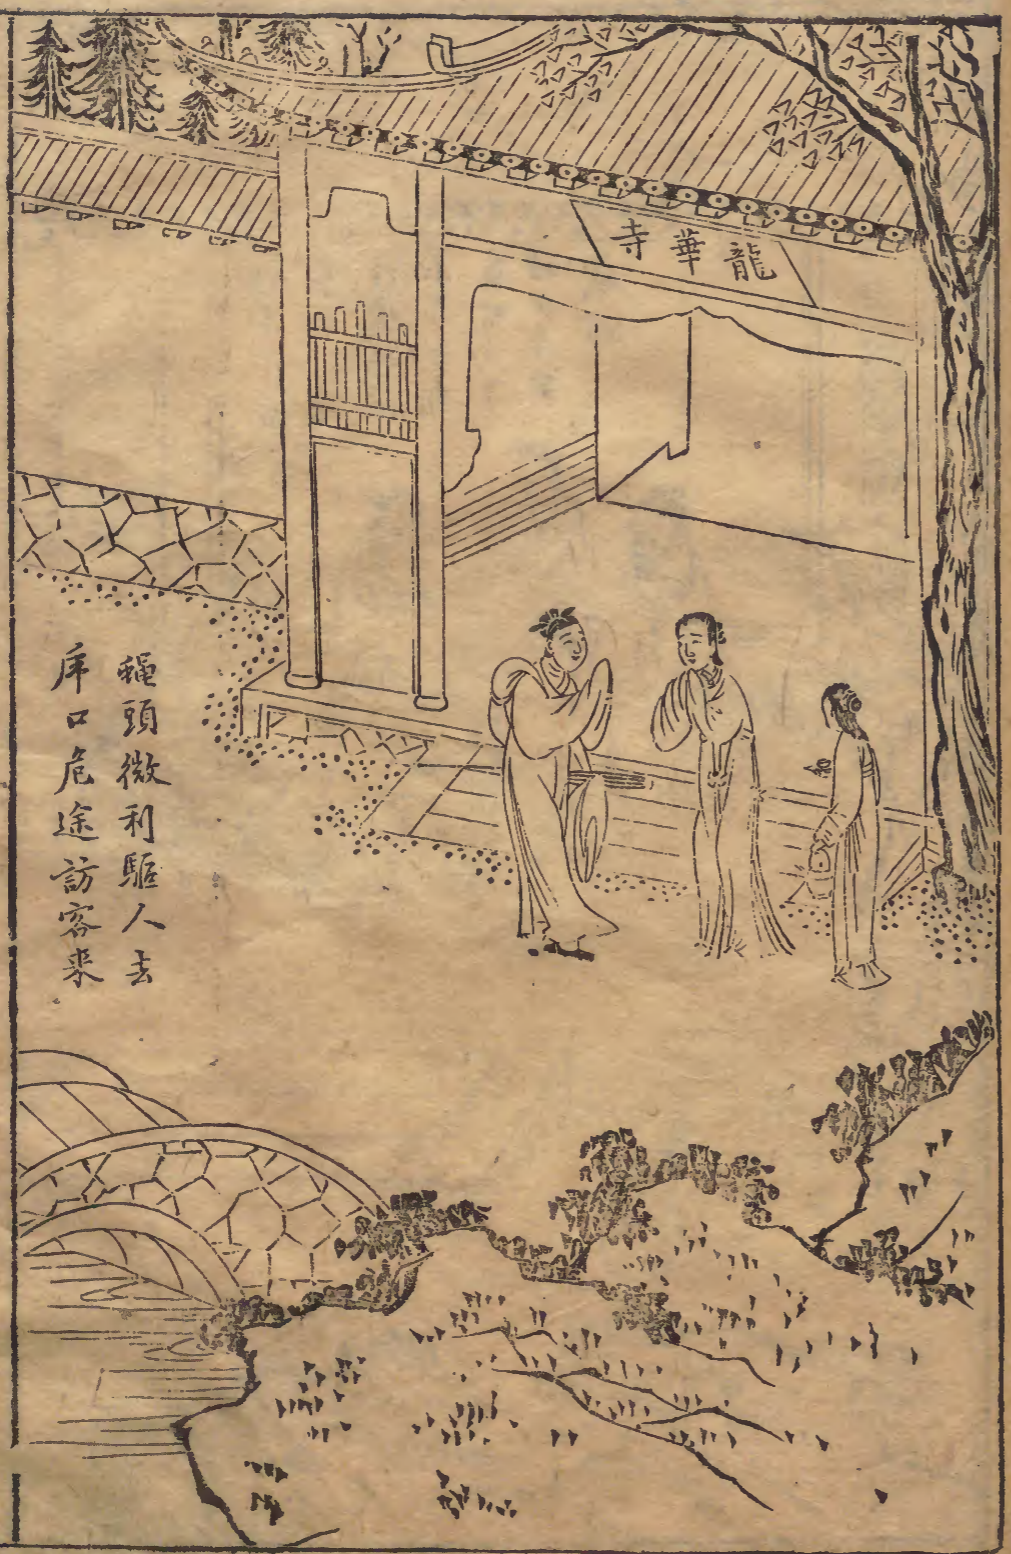 龍華寺
蝇頭微利驅人去
虎口危途訪客來